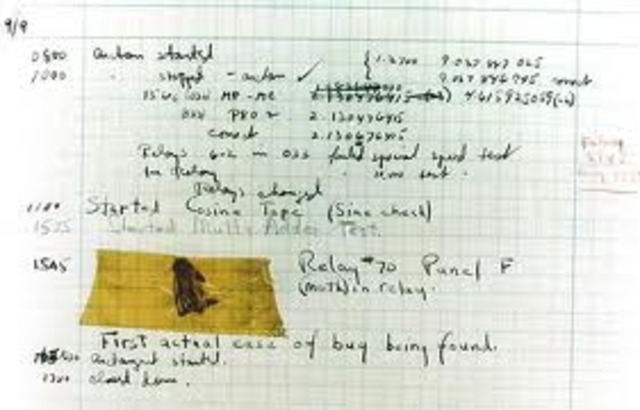 9/9
0800 Antan started
1000 " stopped - antan ✓ { 1.2700 9.037 847 025
9.037 846 995 correct
13"uc (032) MP-MC 4.615925059(-2)
(033) PRO 2 2.130476415
correct 2.130676415
Relays 6-2 in 033 failed special speed test
In Relay " test.
Relays changed
1100 Started Cosine Tape (Sine check)
1525 Started Multi Adder Test.
1545 Relay #70 Panel F
(moth) in relay.
First actual case of bug being found.
Antangent started.
1700 closed down.